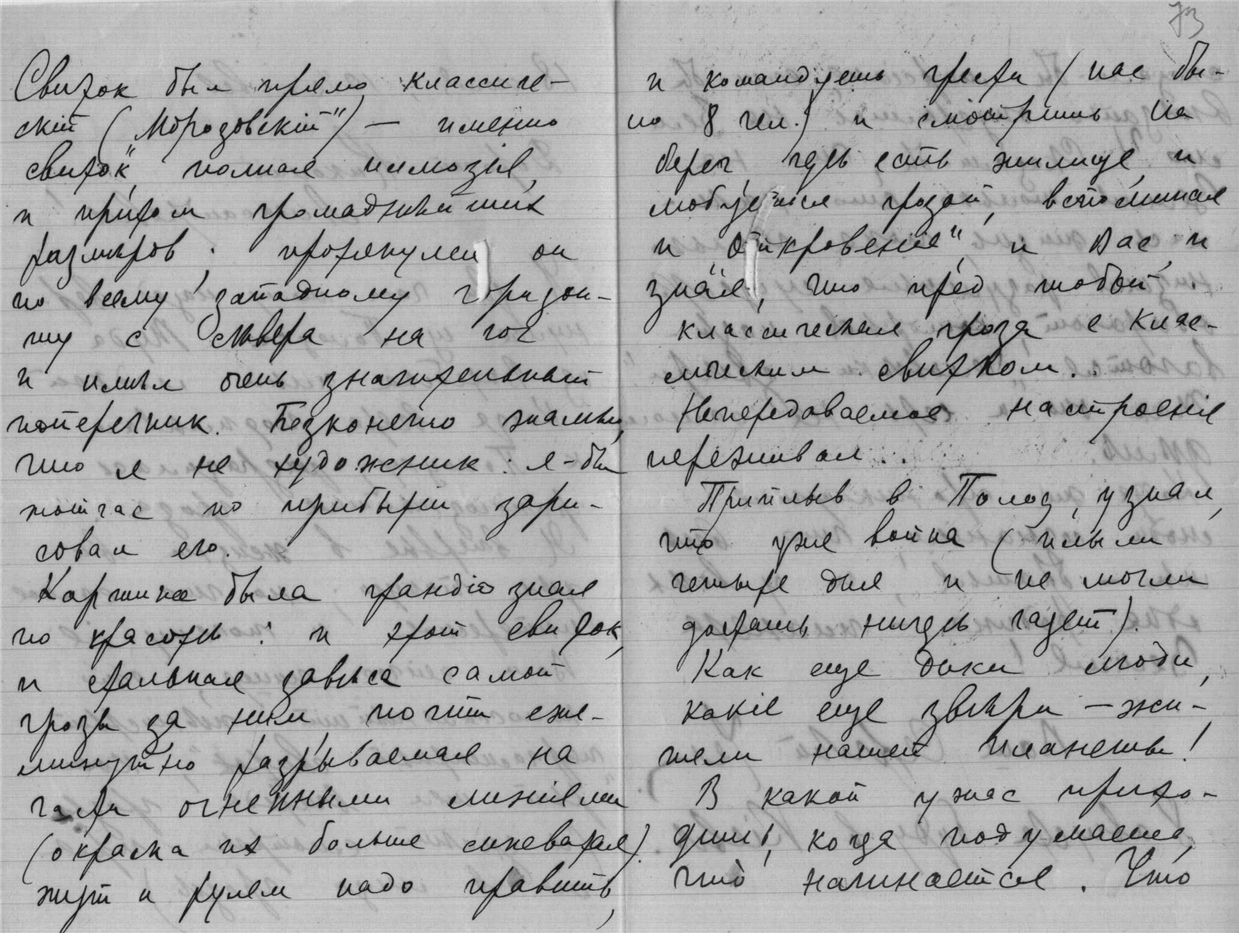 73
Свиток был прямо классиче-
скій („Морозовскій“) — именно
„свиток“, полная иллюзія,
и притом громаднѣйших
размѣров: протянулся он
по всему западному горизон-
ту с сѣвера на юг
и имѣл очень значительный
поперечник. Безконечно жалѣю,
что я не художник: я-бы
тотчас по прибытіи зари-
совал его.
Картина была грандіозная
по красотѣ: и этот свиток,
и стальная завѣса самой
грозы за ним почти еже-
минутно разрываемая на
части огненными линіями
(окраска их больше синеватая).
тут и рулем надо править,
и командуешь грести (нас бы-
ло 8 чел.) и смотришь на
берег, гдѣ есть жилище, и
любуешься грозой, вспоминая
и „Откровеніе“, и Вас, и
зная, что пред тобой
классическая гроза с клас-
сическим свитком..
Непередаваемое настроеніе
переживал...
Приплыв в Полой, узнал,
что уже война (плыли
четыре дня, и не могли
достать нигдѣ газет).
Как еще дики люди,
какіе еще звѣри — жи-
тели нашей планеты!
В какой ужас прихо-
дишь, когда подумаешь,
что начинается. Что